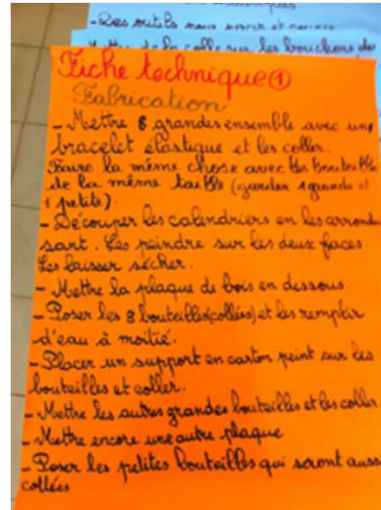 - Des outils pour
Mettre de la colle sur les bouchons des
Fiche technique ①
Fabrication
- Mettre 8 grandes ensemble avec une
bracelet élastique et les coller.
Faire la même chose avec les bouteilles
de la même taille (garder 1 grande et
1 petite)
- Découper les calendriers en les arrondis
sant. Les peindre sur les deux faces.
Les laisser sécher.
- Mettre la plaque de bois en dessous.
- Poser les 8 bouteilles (collées) et les remplir
d'eau à moitié.
- Placer un support en carton peint sur les
bouteilles et coller.
- Mettre les autres grandes bouteilles et les coller
- Mettre encore une autre plaque
- Poser les petites bouteilles qui seront auss
collées